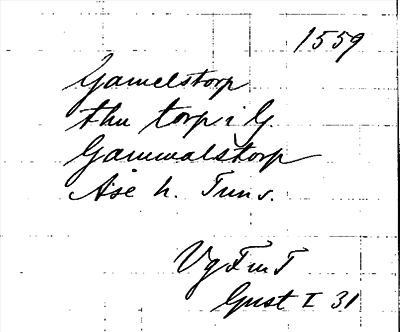 1559
Gamelstorp
thu torp i G.
Gammalstorp
Åse h. Tun s.
Vg Fm T
Gust I 31